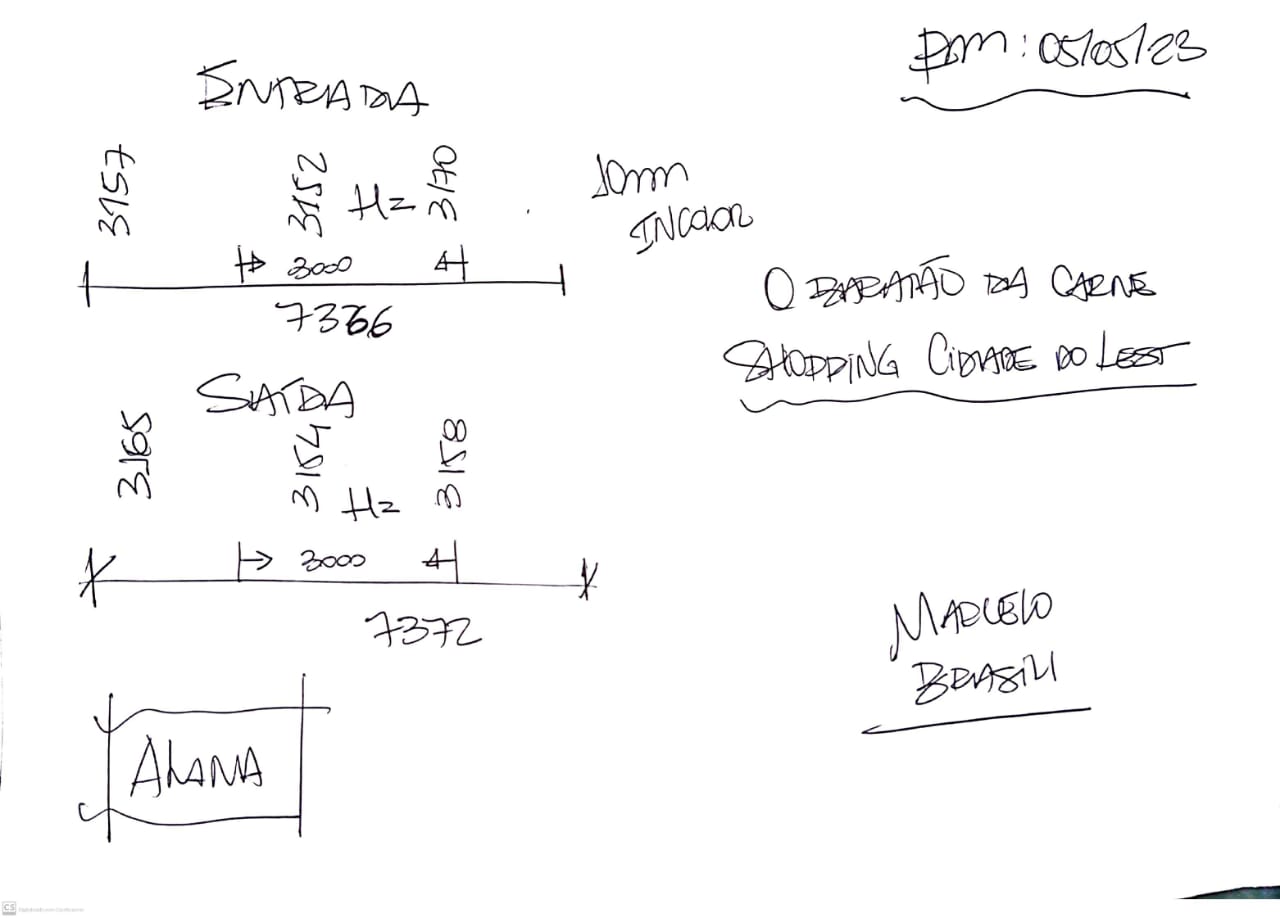 PM: 05/05/23
ENTRADA
3157
3152
Hz
3170
3000
10mm
INCOLOR
7366
O BARATÃO DA CARNE
SHOPPING CIDADE DO LEST
SAÍDA
3165
3154
Hz
3158
3000
7372
MARCELO
BRASIL
ALANA
CS